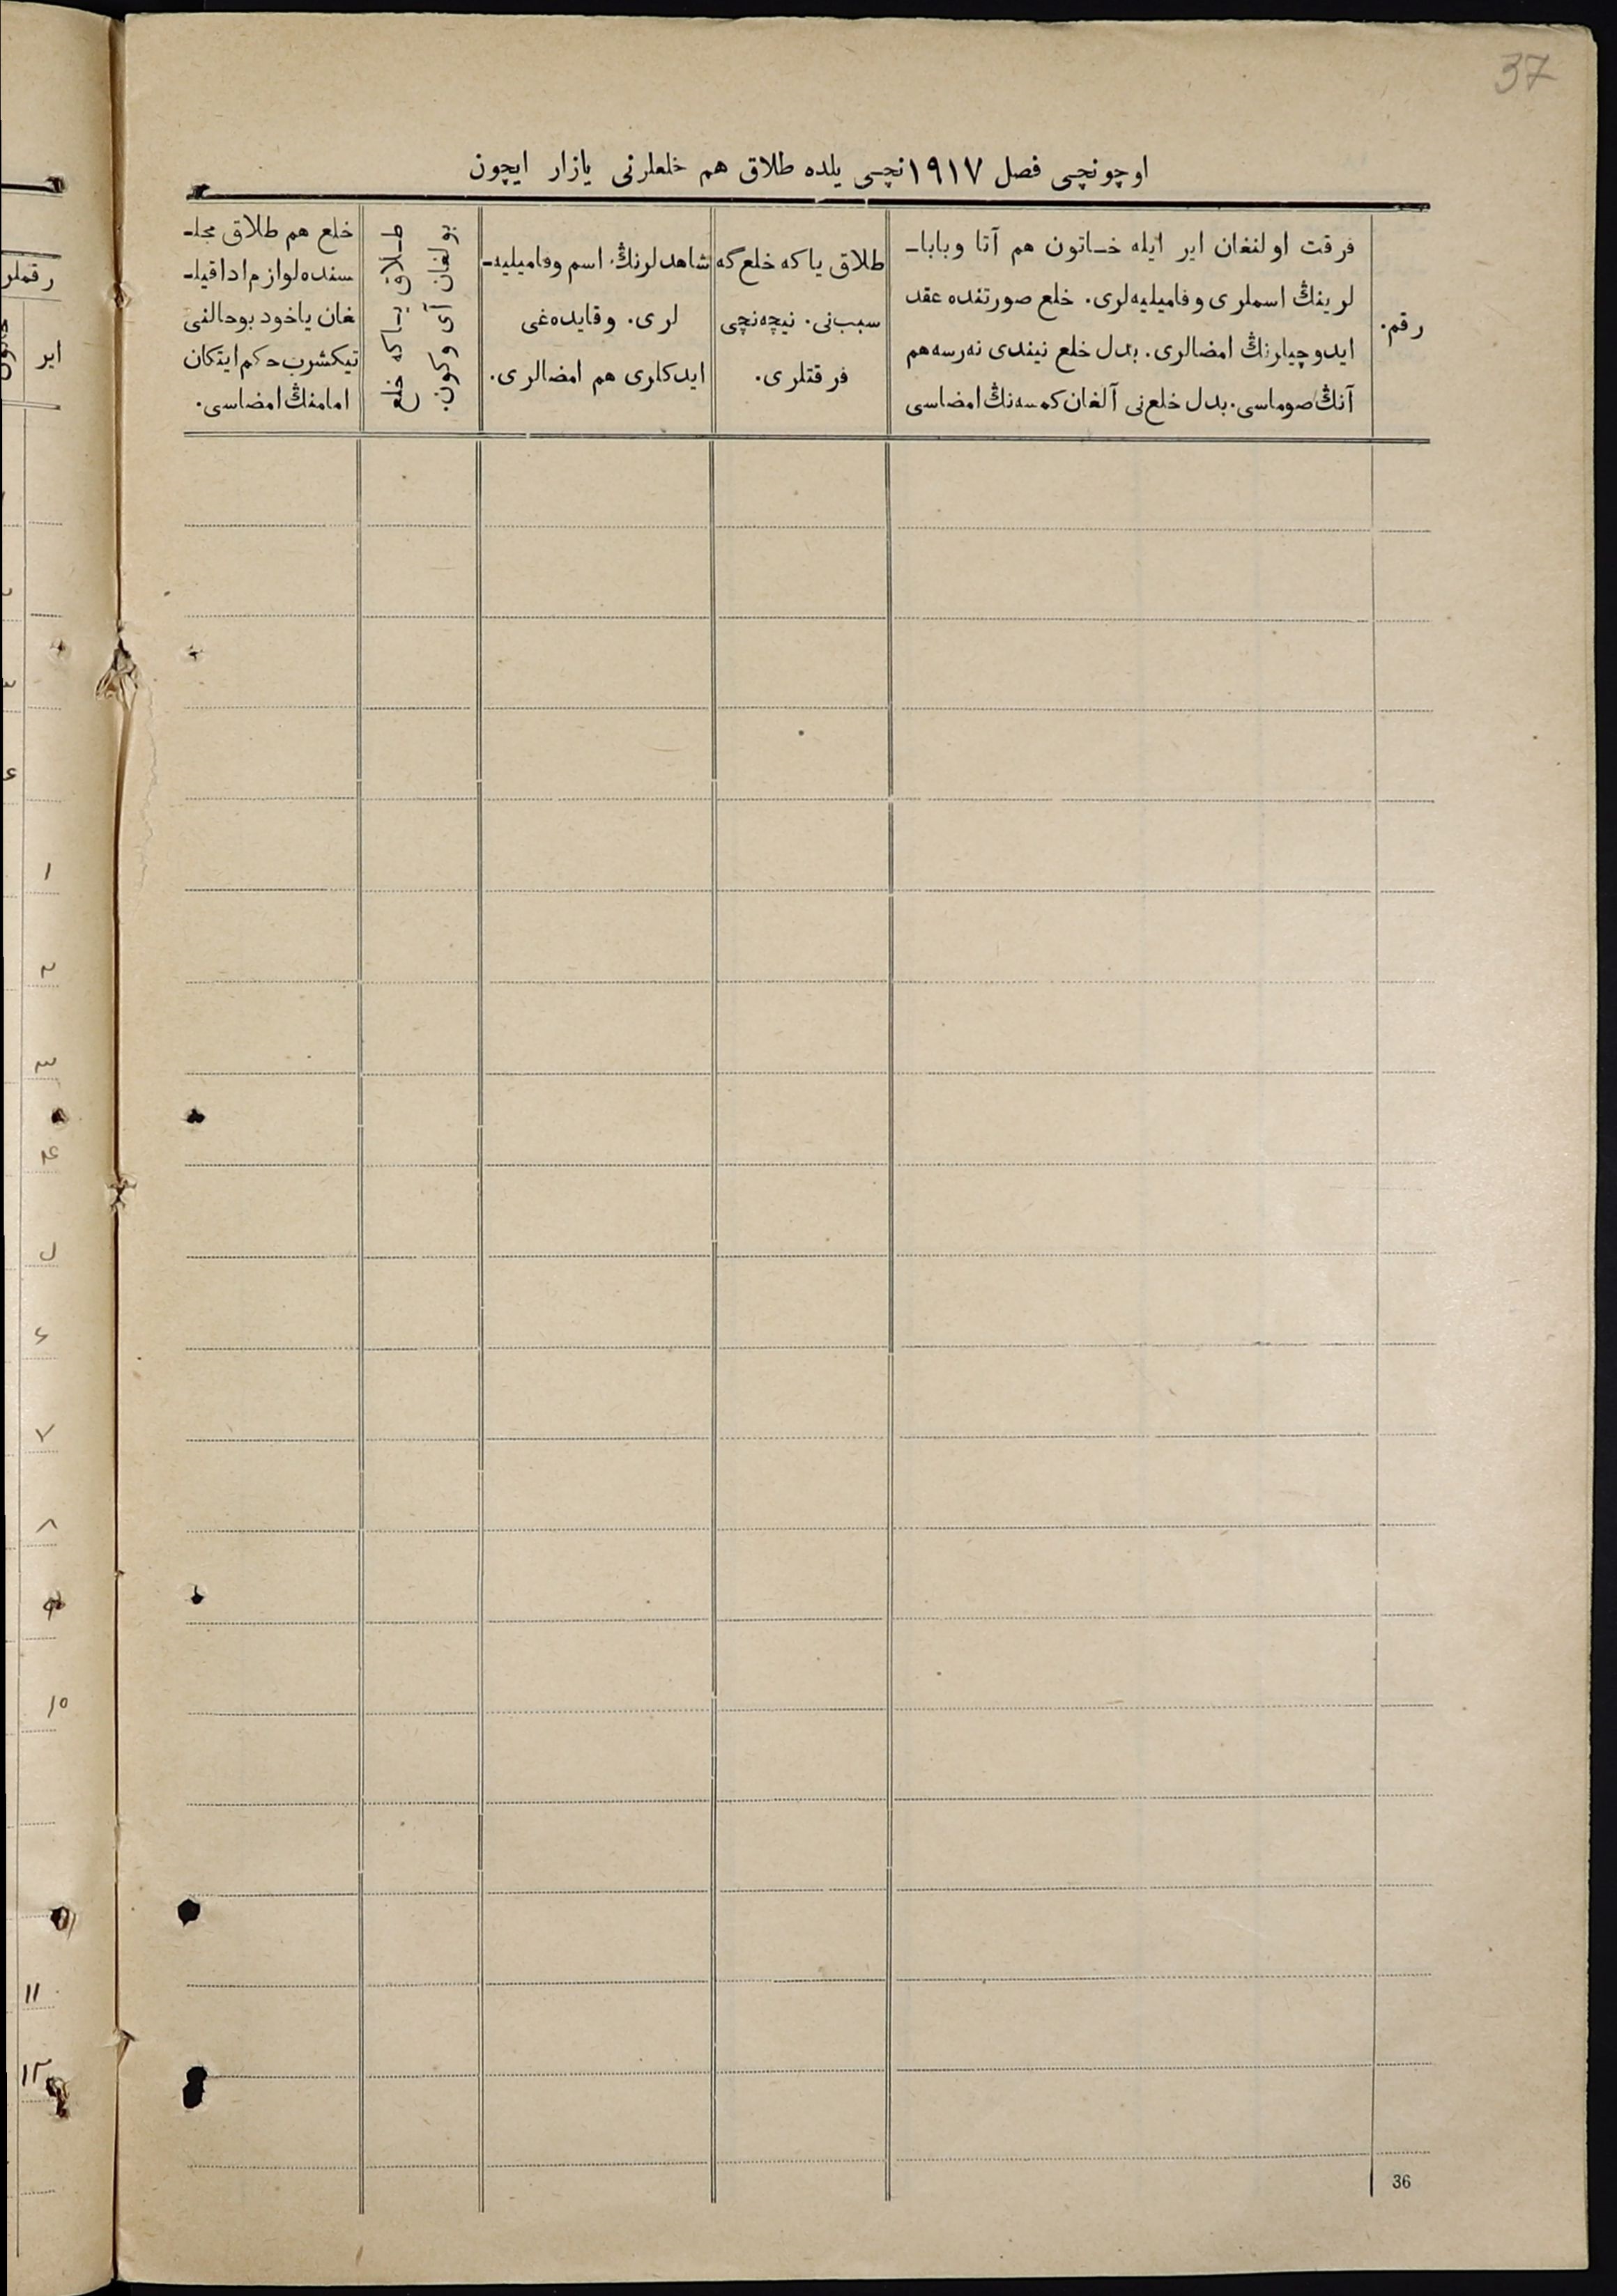 37
اوچونچی فصل ١٩١٧نچی یلده طلاق هم خلعلرنی یازار ایچون
رقم.
فرقت اولنغان ایر ایله خـاتون هم آتا وباباـ
لرینڭ اسملری وفامیلیه‌لری. خلع صورتنده عقد
ایدوچیلرنڭ امضالری. بدل خلع نیندی نه‌رسه‌هم
آنڭ صوماسی. بدل خلع‌نی آلغان کمسه‌نڭ امضاسی
طلاق یاکه خلع‌گه
سبب‌نی. نیچه‌نچی
فرقتلری.
شاهدلرنڭ اسم وفامیلیه‌ـ
لری. وقایده‌غی
ایدکلری هم امضالری.
طـلاق یـاکه خلع
بولغان آی وکون.
خلع هم طلاق مجلـ
سنده‌لوازم اداقیلـ
غان یاخود بوحالنی
تیکشرب حکم ایتکان
امامنڭ امضاسی.
رقملر
ایر
١
٢
٣
۴
۶
٧
٨
٩
١٠
١١
١٢
36